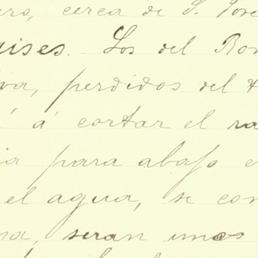 cerca de S. José
uises. Los del
va, perdidos del
á cortar el ra
ia para abajo e
el agua, se con
na, seran unos